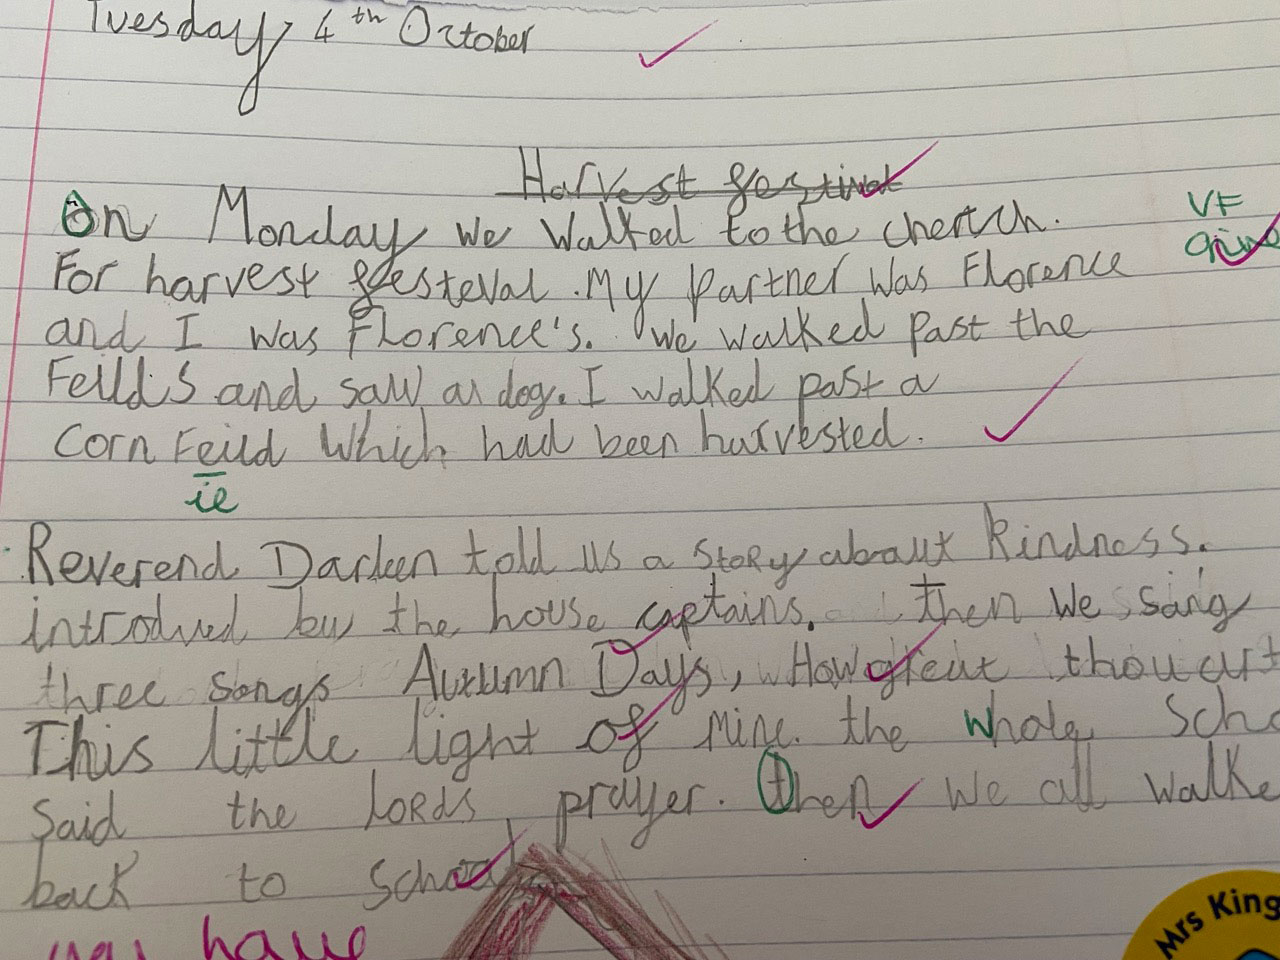 Tuesday, 4th October
Harvest festival
On Monday we walked to the cherch.
VF
For harvest festeval. My partner was Florence
and I was Florence's. We walked past the
Feilds and saw a dog. I walked past a
Corn Feild which had been harvested.
ie
Reverend Darken told us a story about kindness.
introdued by the house captains. then we sang
three songs Autumn Days, How great thou art
This little light of mine. the whole Scho
Said the Lords prayer. Then we all walke
back to school
you have
Mrs King